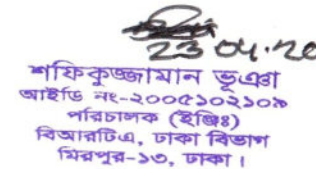 23 04.20
শফিকুজ্জামান ভূঞা
আইডি নং-২০০৫১০২১০৯
পরিচালক (ইঞ্জিঃ)
বিআরটিএ, ঢাকা বিভাগ
মিরপুর-১৩, ঢাকা।